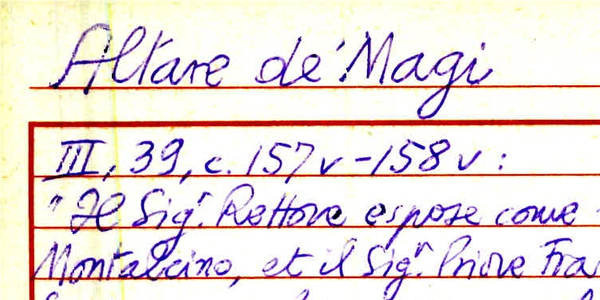 Altare de' Magi
III, 39, c. 157v - 158v :
"Il Sigr. Rettore espose come
Montalcino, et il Sigr. Priore Fra